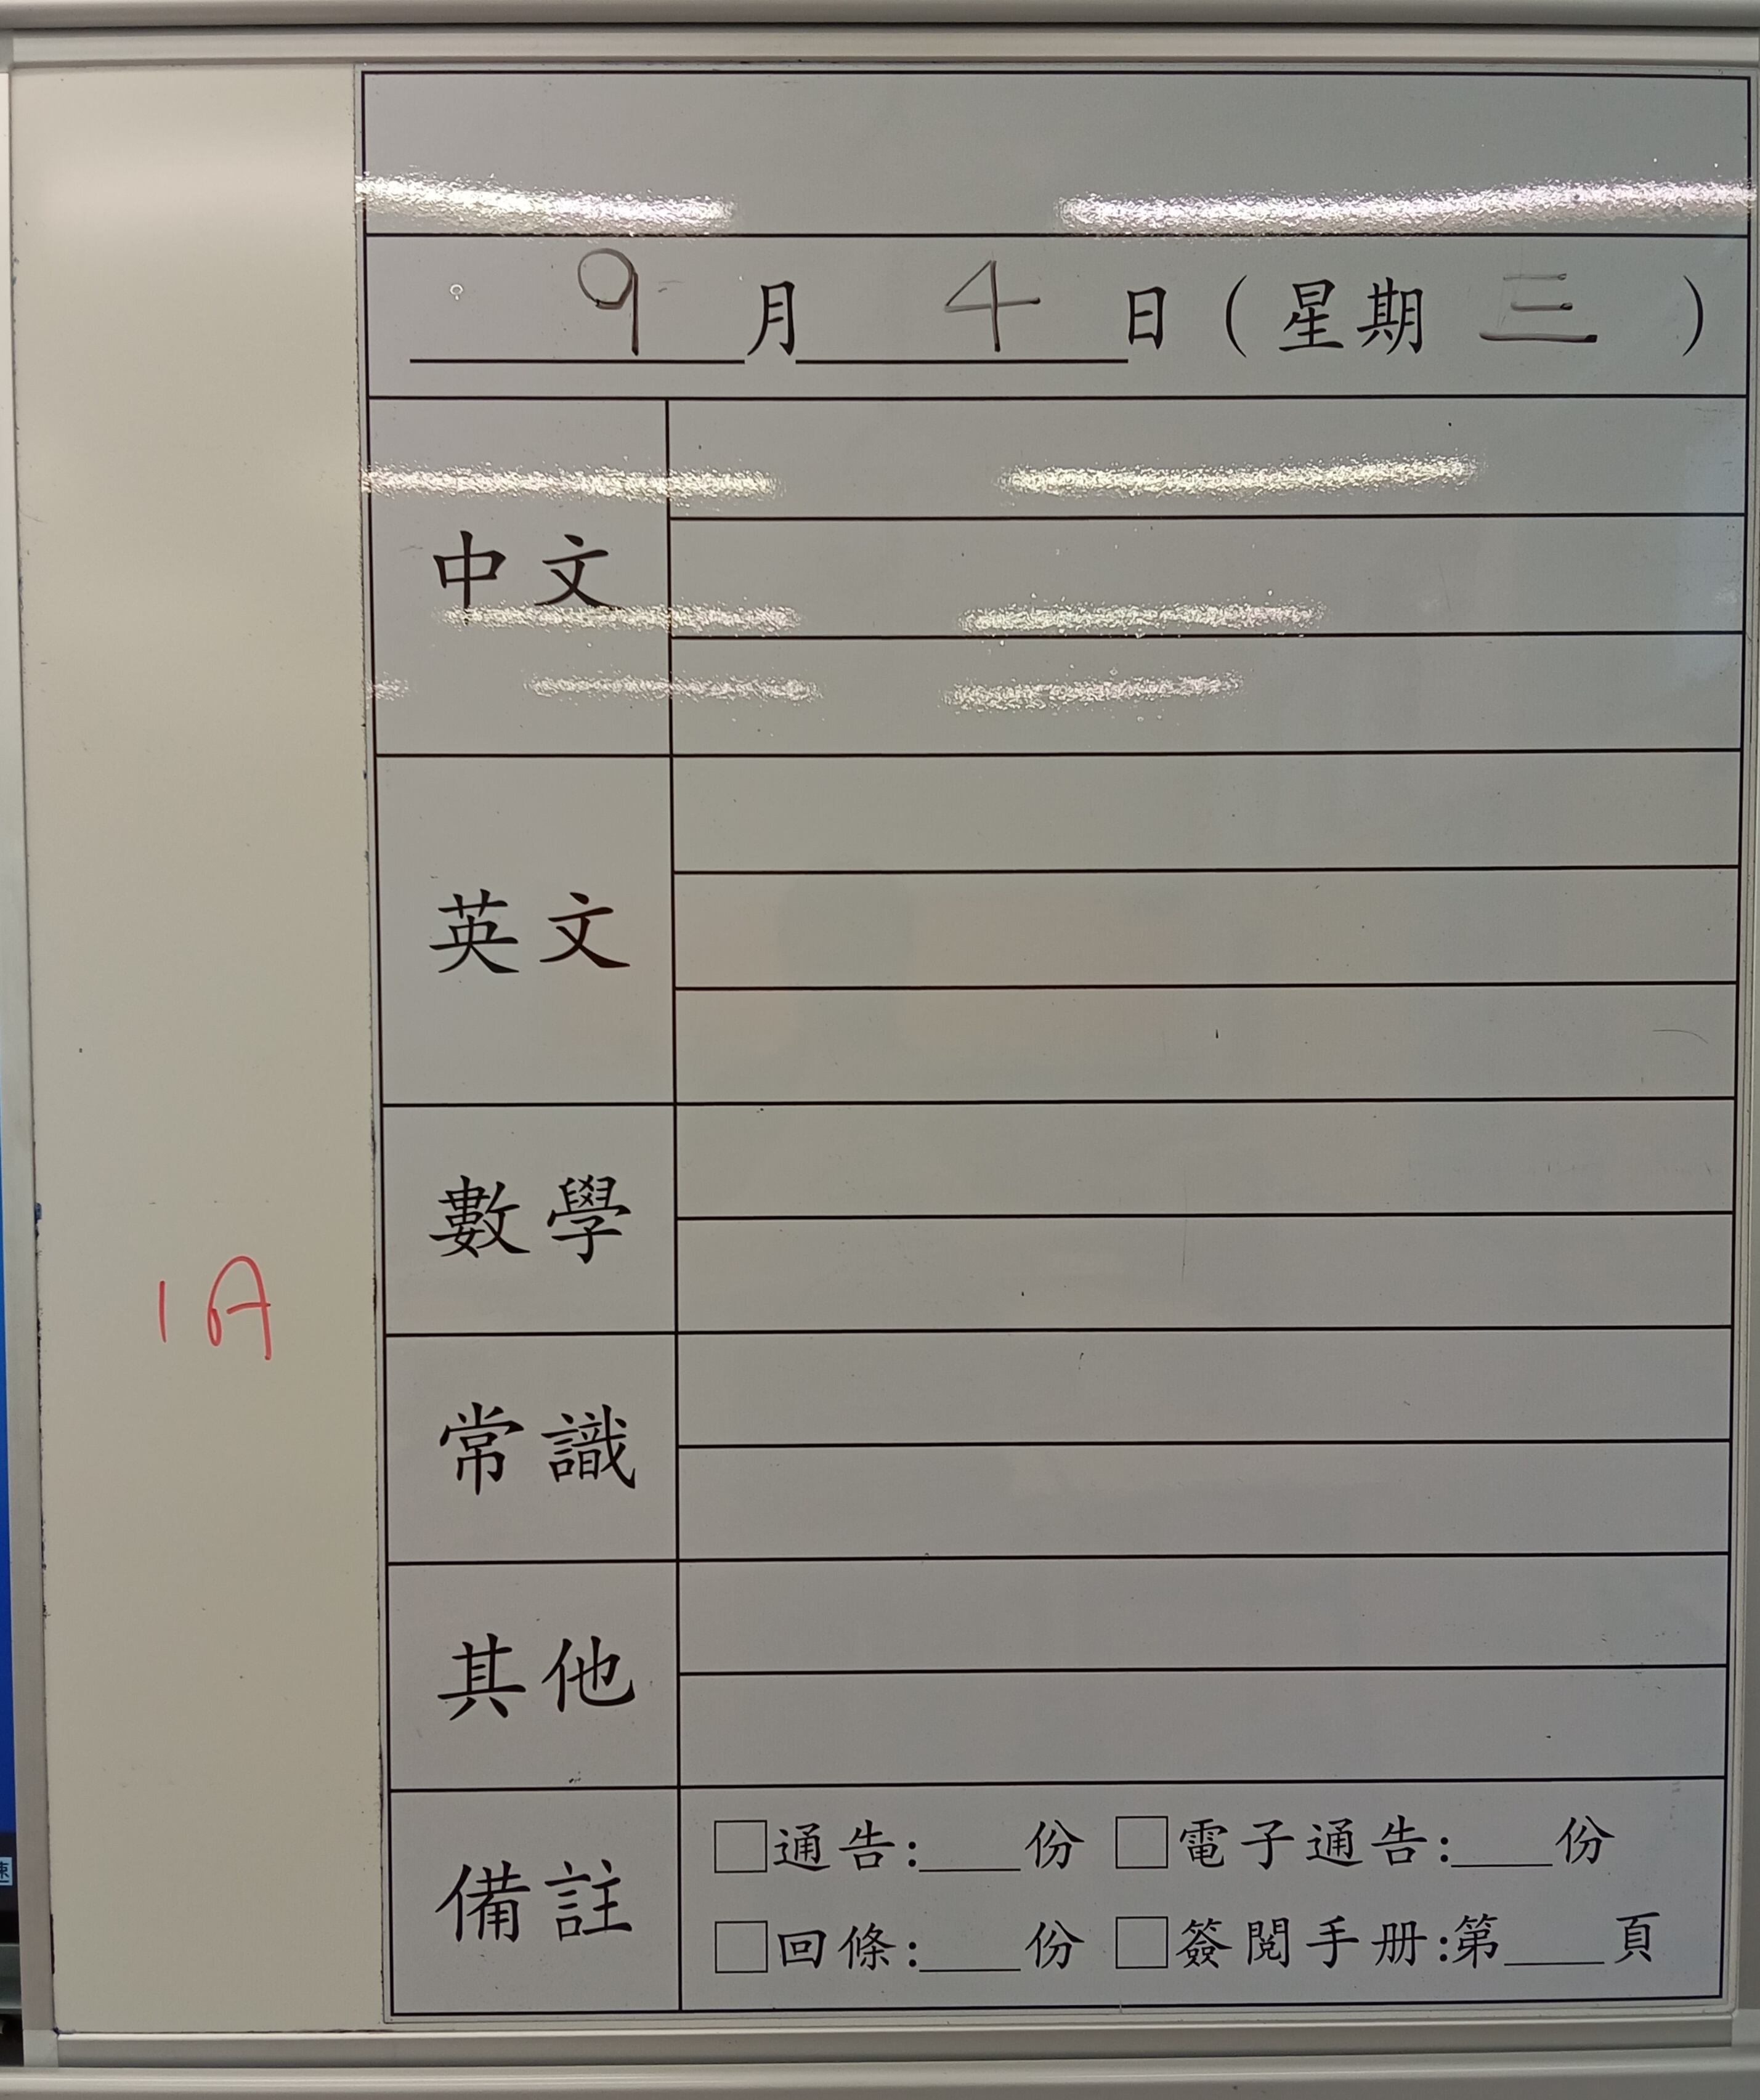 9月4日(星期三)
中文
英文
數學
1A
常識
其他
備註
□通告:___份 □電子通告:___份
□回條:___份 □簽閱手册:第___頁